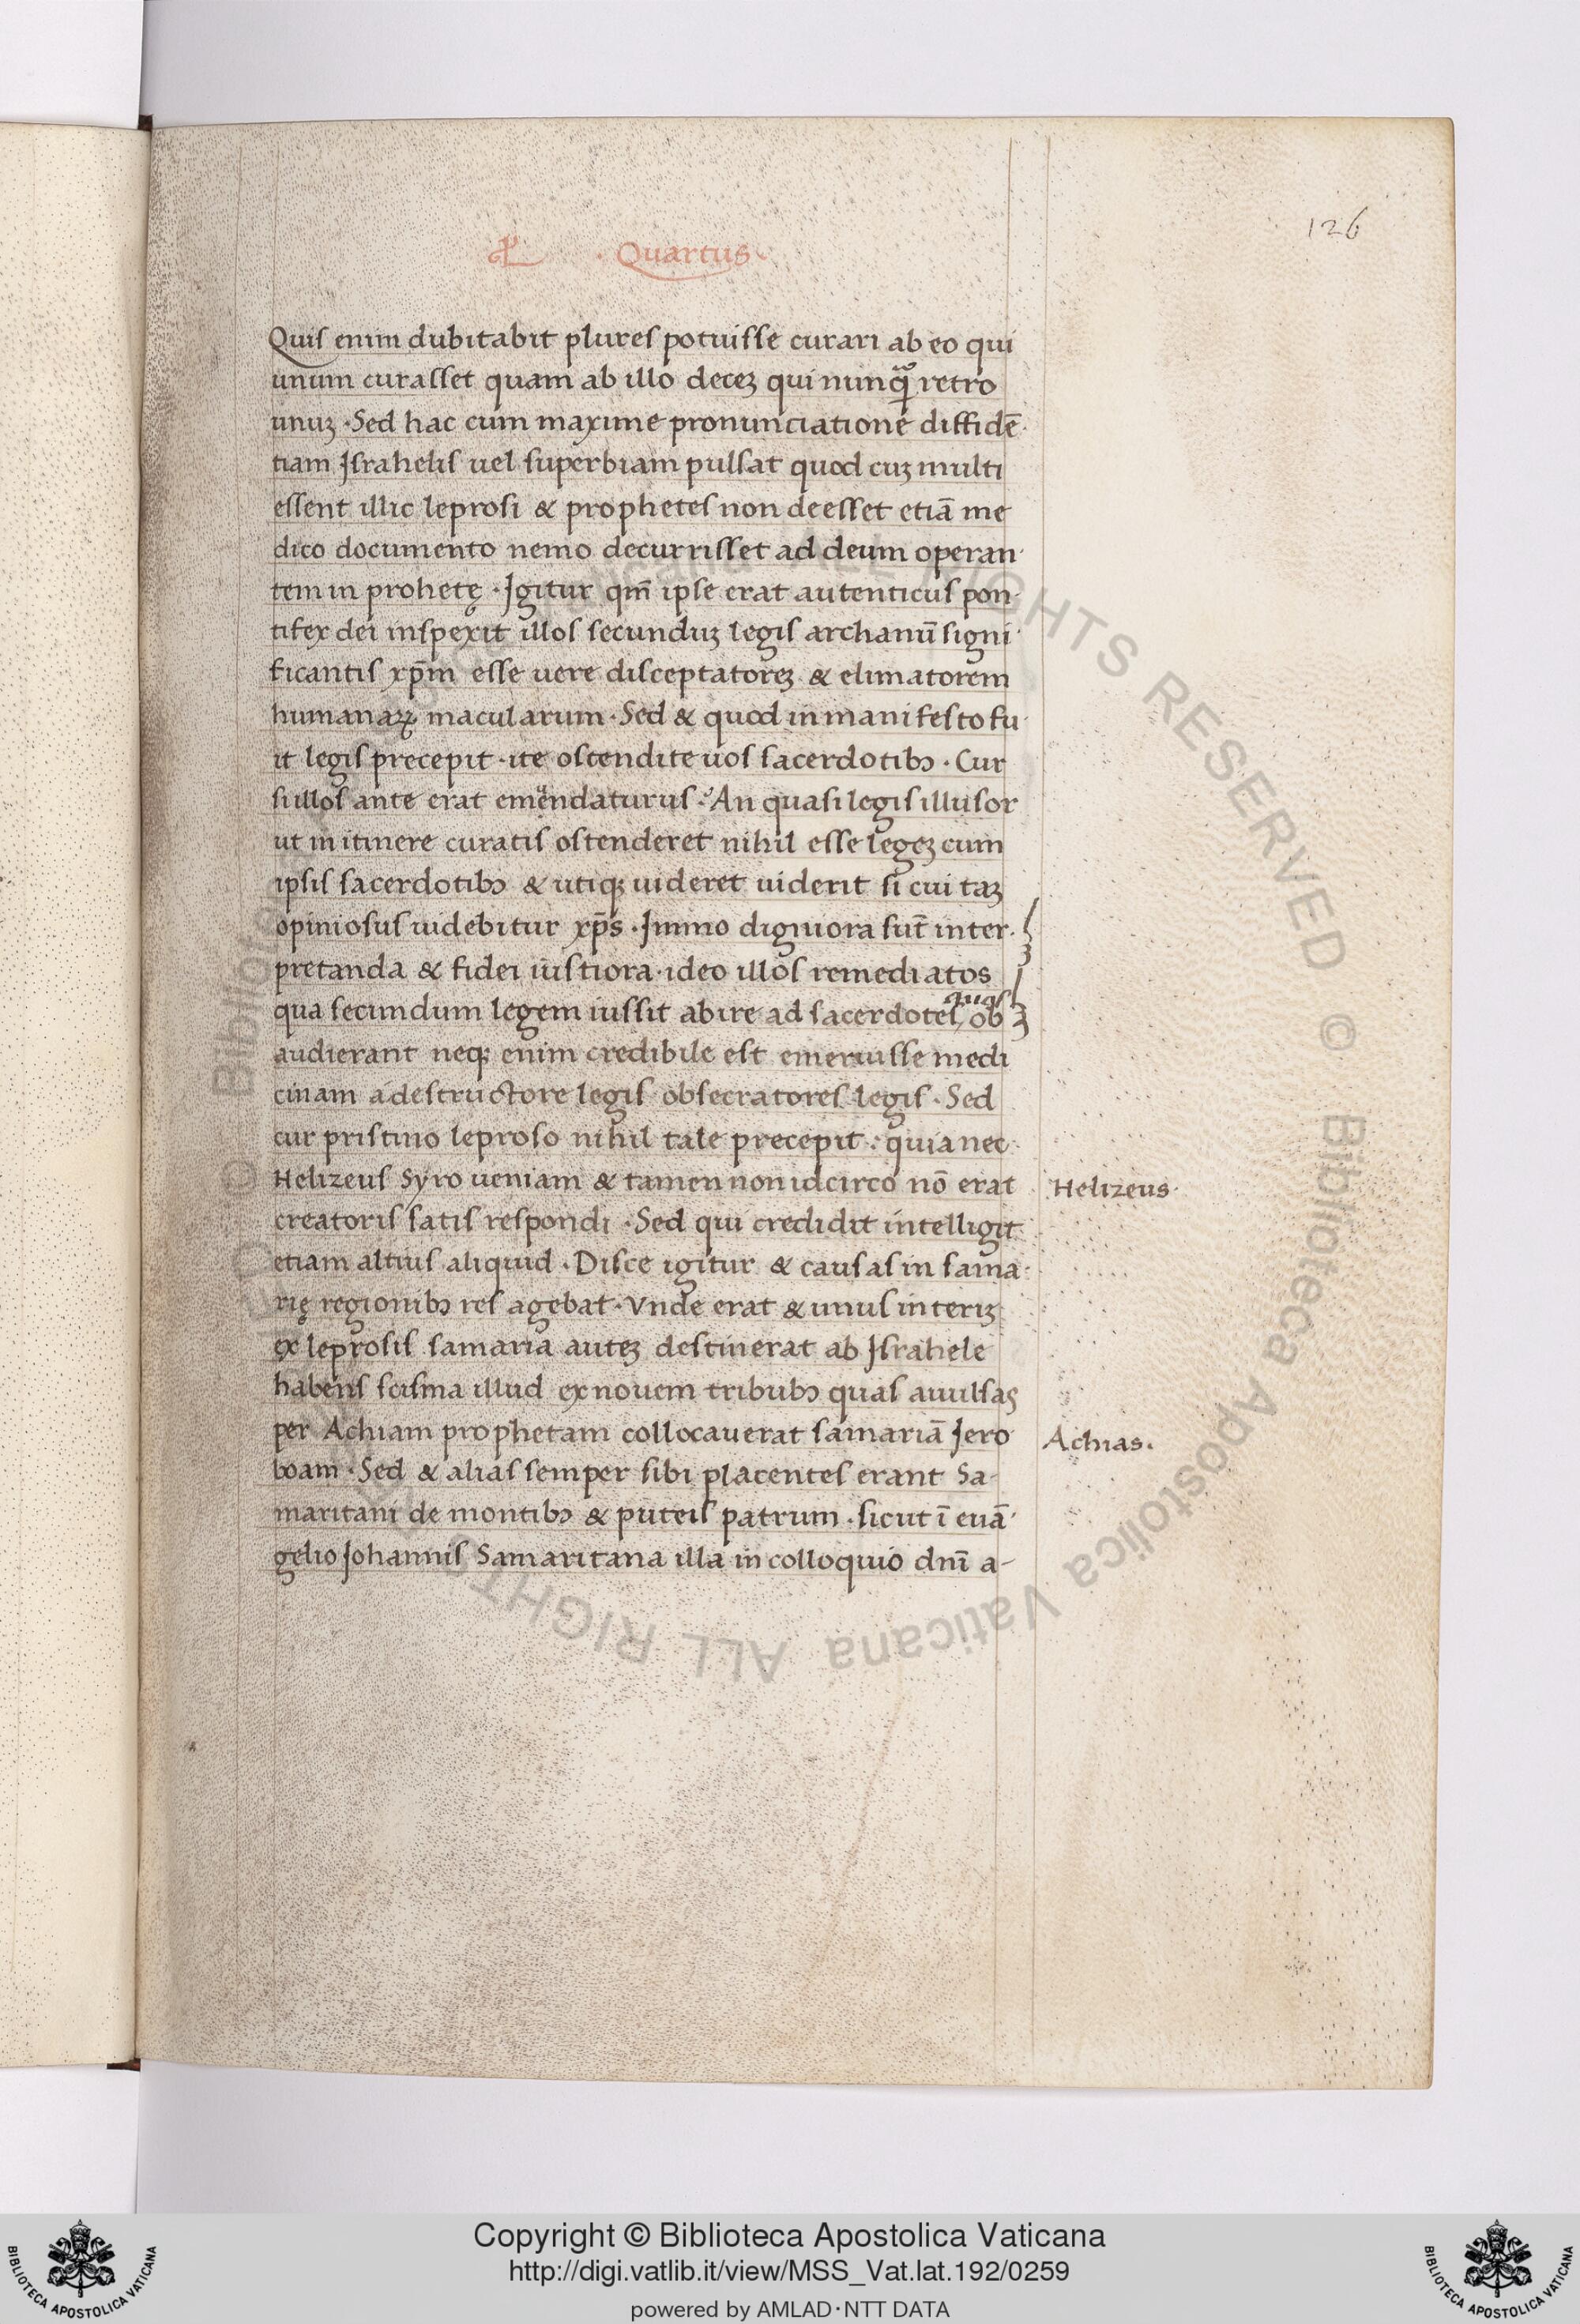 126
· Quartus ·
Quis enim dubitabit plures potuisse curari ab eo qui
unum curasset quam ab illo deceꝫ qui nunqͣ retro
unuꝫ · Sed hac cum maxime pronunciatione diffidē·
tiam Jsrahelis uel superbiam pulsat quod cuꝫ multi
essent illic leprosi & prophetes non deesset etiā me
dico documento nemo decurrisset ad deum operan·
tem in prohetę · Jgitur qm̄ ipse erat autenticus pon·
tifex dei inspexit illos secunduꝫ legis archanū signi·
ficantis xp̄m esse uere disceptatoreꝫ & elimatorem
humanaꝝ macularum · Sed & quod in manifesto fu·
it legis precepit · ite ostendite uos sacerdotibꝰ · Cur
si illos ante erat emendaturus · An quasi legis illusor
ut in itinere curatis ostenderet nihil esse legeꝫ cum
ipsis sacerdotibꝰ & utiqꝫ uideret uiderit si cui taꝫ
opiniosus uidebitur xp̄s · Jmmo digniora sūt inter·
pretanda & fidei iustiora · ideo illos remediatos
qua secundum legem iussit abire ad sacerdotes quas ob
audierant neqꝫ enim credibile est emeruisse medi
cinam a destructore legis obsecratores legis · Sed
cur pristino leproso nihil tale precepit : quia nec
Helizeus Syro ueniam & tamen non idcirco nō erat
Helizeus ·
creatoris satis respondi · Sed qui credidit intelligit
etiam altius aliquid · Disce igitur & causas in sama·
rię regionibꝰ res agebat · Vnde erat & unus interiꝫ
ex leprosis samaria auteꝫ destinerat ab Jsrahele
habens scisma illud ex nouem tribubꝰ quas auulsas
per Achiam prophetam collocauerat samariā Jero
Achias.
boam · Sed & alias semper sibi placentes erant Sa-
maritani de montibꝰ & puteis patrum · sicut ī euā·
gelio Johannis Samaritana illa in colloquio dn̄i a-
Copyright © Biblioteca Apostolica Vaticana
http://digi.vatlib.it/view/MSS_Vat.lat.192/0259
powered by AMLAD·NTT DATA
BIBLIOTECA APOSTOLICA VATICANA
BIBLIOTECA APOSTOLICA VATICANA